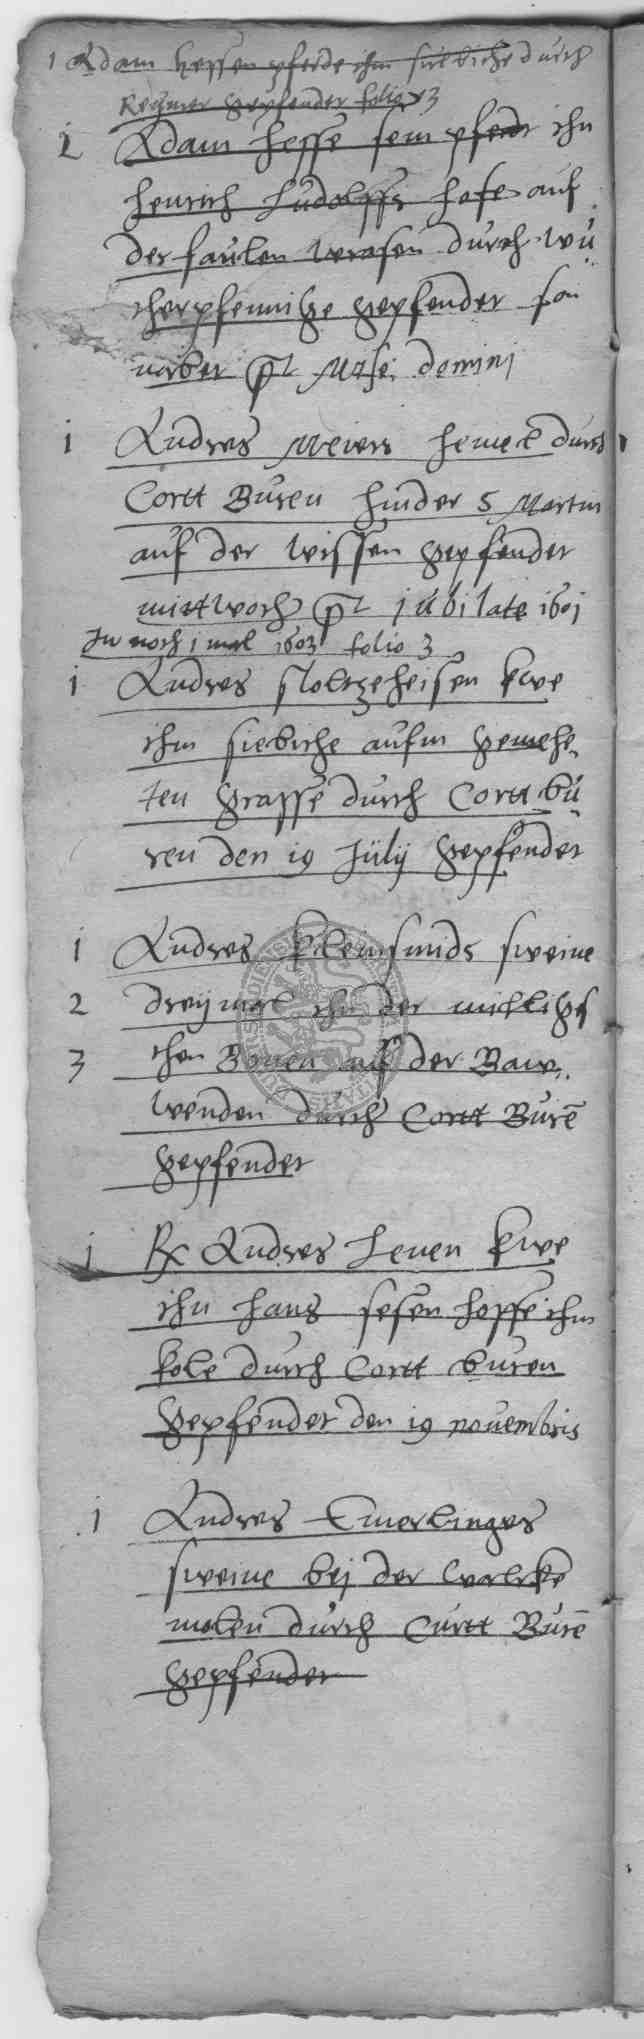 1 Adam hessen pferde ihm siebiche durch
Reymer gepfendet folio 3
1 Adam hesse sein pferdt ihn
henrich Ludolffs hofe auf
der faulen wrasen durch wü
cherpfennige gepfendet son
naber p[ost] Misē domini
1 Andres Meiers hemel durch
Cortt Buren hinder S Martin
auf der wissen gepfendet
mittwoch p[ost] jubilate 1601
Itē noch 1 mal 1603 folio 3
1 Andres stoltzeheisen kwe
ihm siebiche aufm gemehe
ten grasse durch Cortt bu
ren den 19 Julij gepfendet
1 Andres kleinsmids sweine
2 dreymal ihn der
3 chen Bonen auf der Baw
wenden durch Cortt Burē
gepfendet
1 Rx Andres Leuen kwe
ihn hans sesen hoffe ihm
kole durch Cortt buren
gepfendet den 19 novembris
1 Andres Emerlinges
sweine bej der walcke
molen durch Curtt Burē
gepfendet